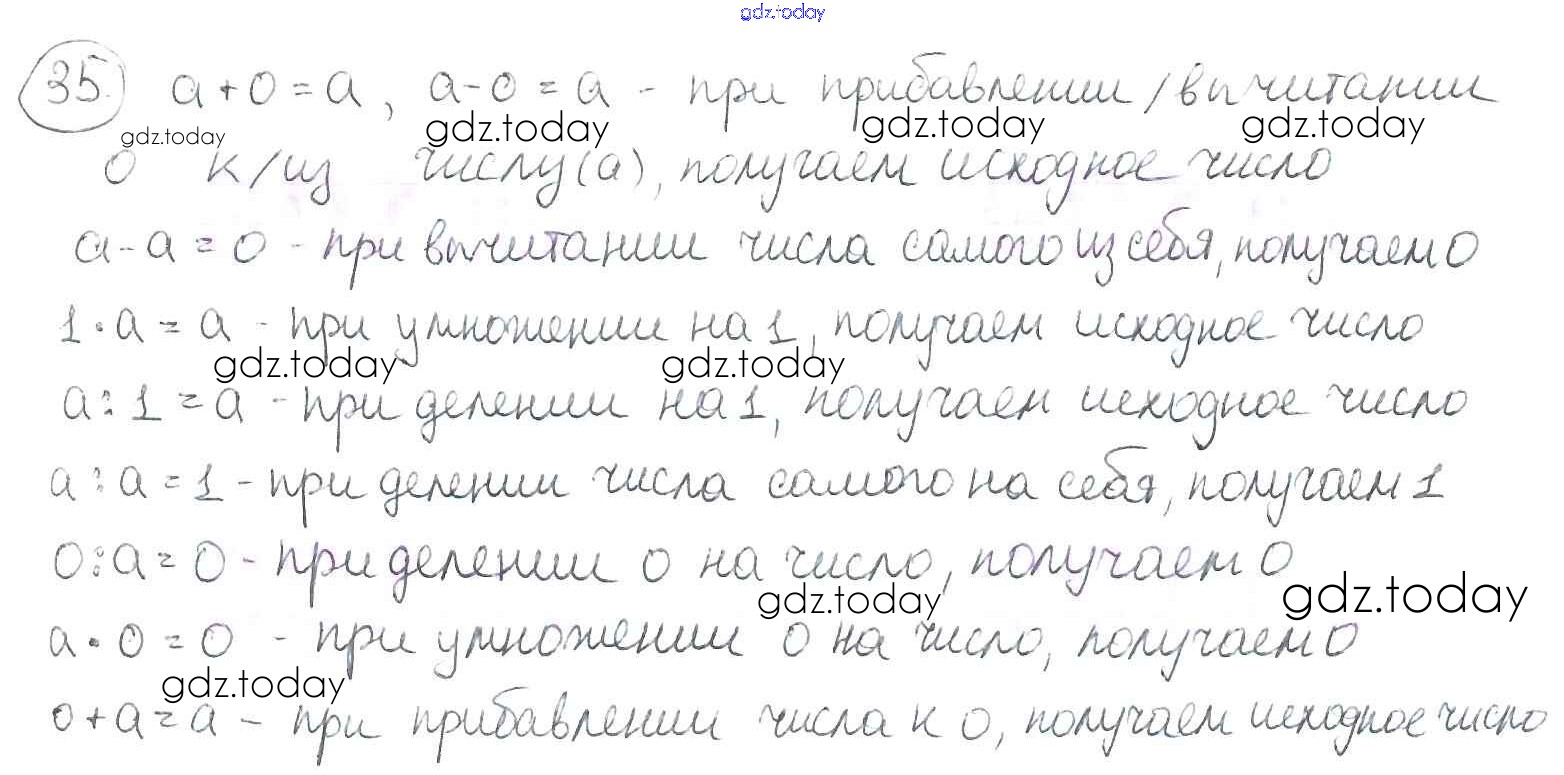 gdz.today
35. a+0=a, a-0=a - при прибавлении/вычитании
gdz.today gdz.today gdz.today gdz.today
0 к/из числу(а), получаем исходное число
a-a=0 - при вычитании числа самого из себя, получаем 0
1·a=a - при умножении на 1, получаем исходное число
gdz.today gdz.today
a:1=a - при делении на 1, получаем исходное число
a:a=1 - при делении числа самого на себя, получаем 1
0:a=0 - при делении 0 на число, получаем 0
gdz.today gdz.today
a·0=0 - при умножении 0 на число, получаем 0
gdz.today
0+a=a - при прибавлении числа к 0, получаем исходное число